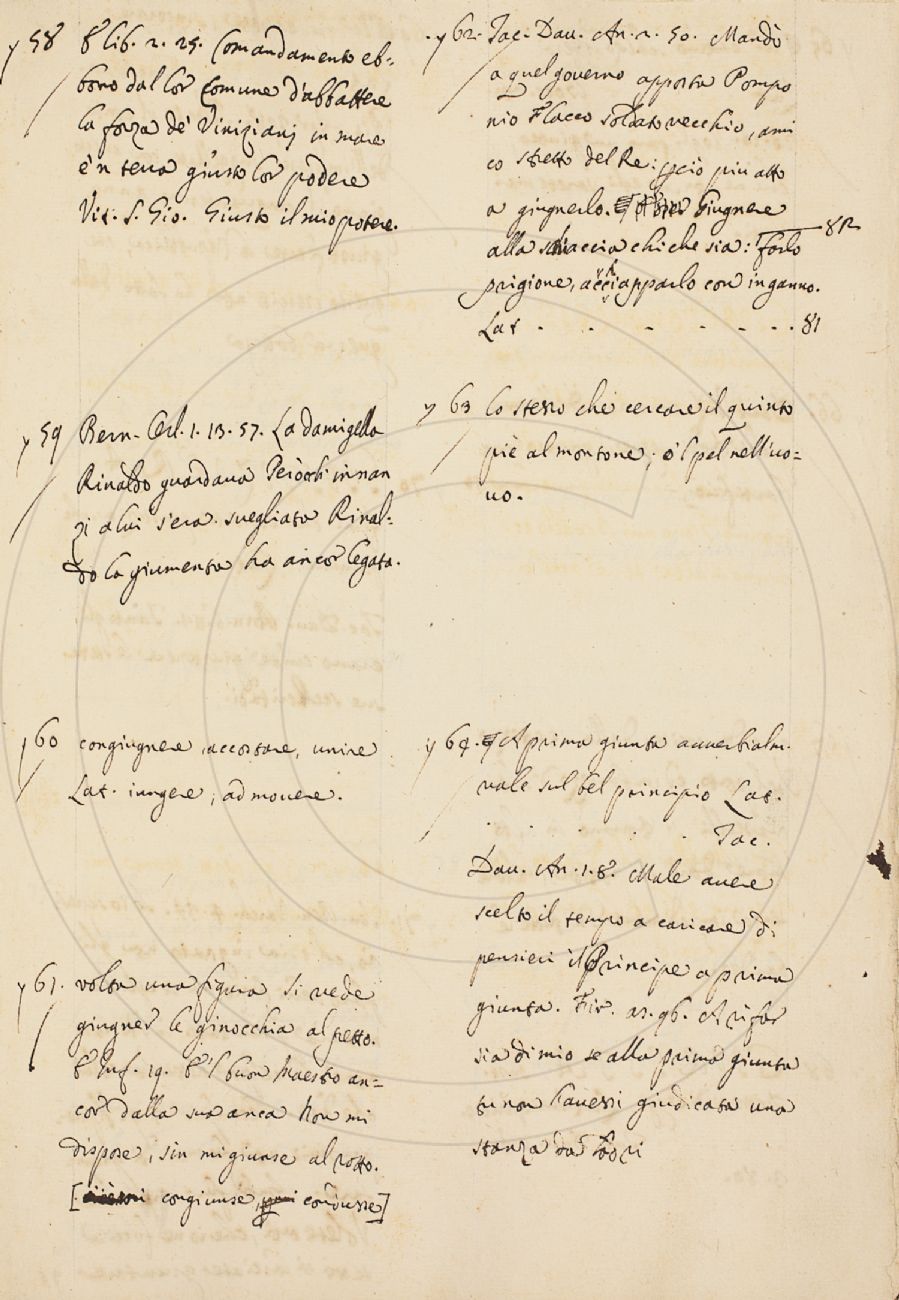 y 58 & lib. 2. 25. Comandamento eb=
bono dal lor comune d'abbattere
la forza de' Viniziani in mare
e 'n terra giusto lor podere
Vit. S. Gio. Giusto il mio potere.
y 59 Bern. Orl. 1. 13. 57. La damigella
Rinaldo guardava innan
zi a lui s'era svegliata Rinal=
do la giumenta ha ancor legata.
y 60 congiugnere, accostare, unire
Lat. iungere, admovere.
y 61. volta una figura si vede
giugner le ginocchia al petto.
& Inf. 19. & 'l buon Maestro an=
cor dalla sua anca non mi
dispose, sin mi giunse al rotto.
[congiunse, condusse]
y 62. Tac. Dav. An. 2. 50. Mandò
a quel governo apposta Pompo
nio Flacco soldato vecchio, ami
co stretto del Re: pciò più atto
a giugnerlo. Giugnere
alla schiaccia chi che sia: farlo 82
prigione, acchiapparlo con inganno.
Lat . . . - - - - . . 81
y 63 lo stesso che cercare il quinto
piè al montone; o 'l pel nell'uo=
vo.
y 64. A prima giunta avverbialm.
vale sul bel principio Lat.
. . . . Tac.
Dav. An. 1. 8. Male avere
scelto il tempo a caricare di
pensieri il Principe a prima
giunta. Fir. as. 96. A rifar
sia di mio se alla prima giunta
tu non l'avessi giudicata una
stanza da